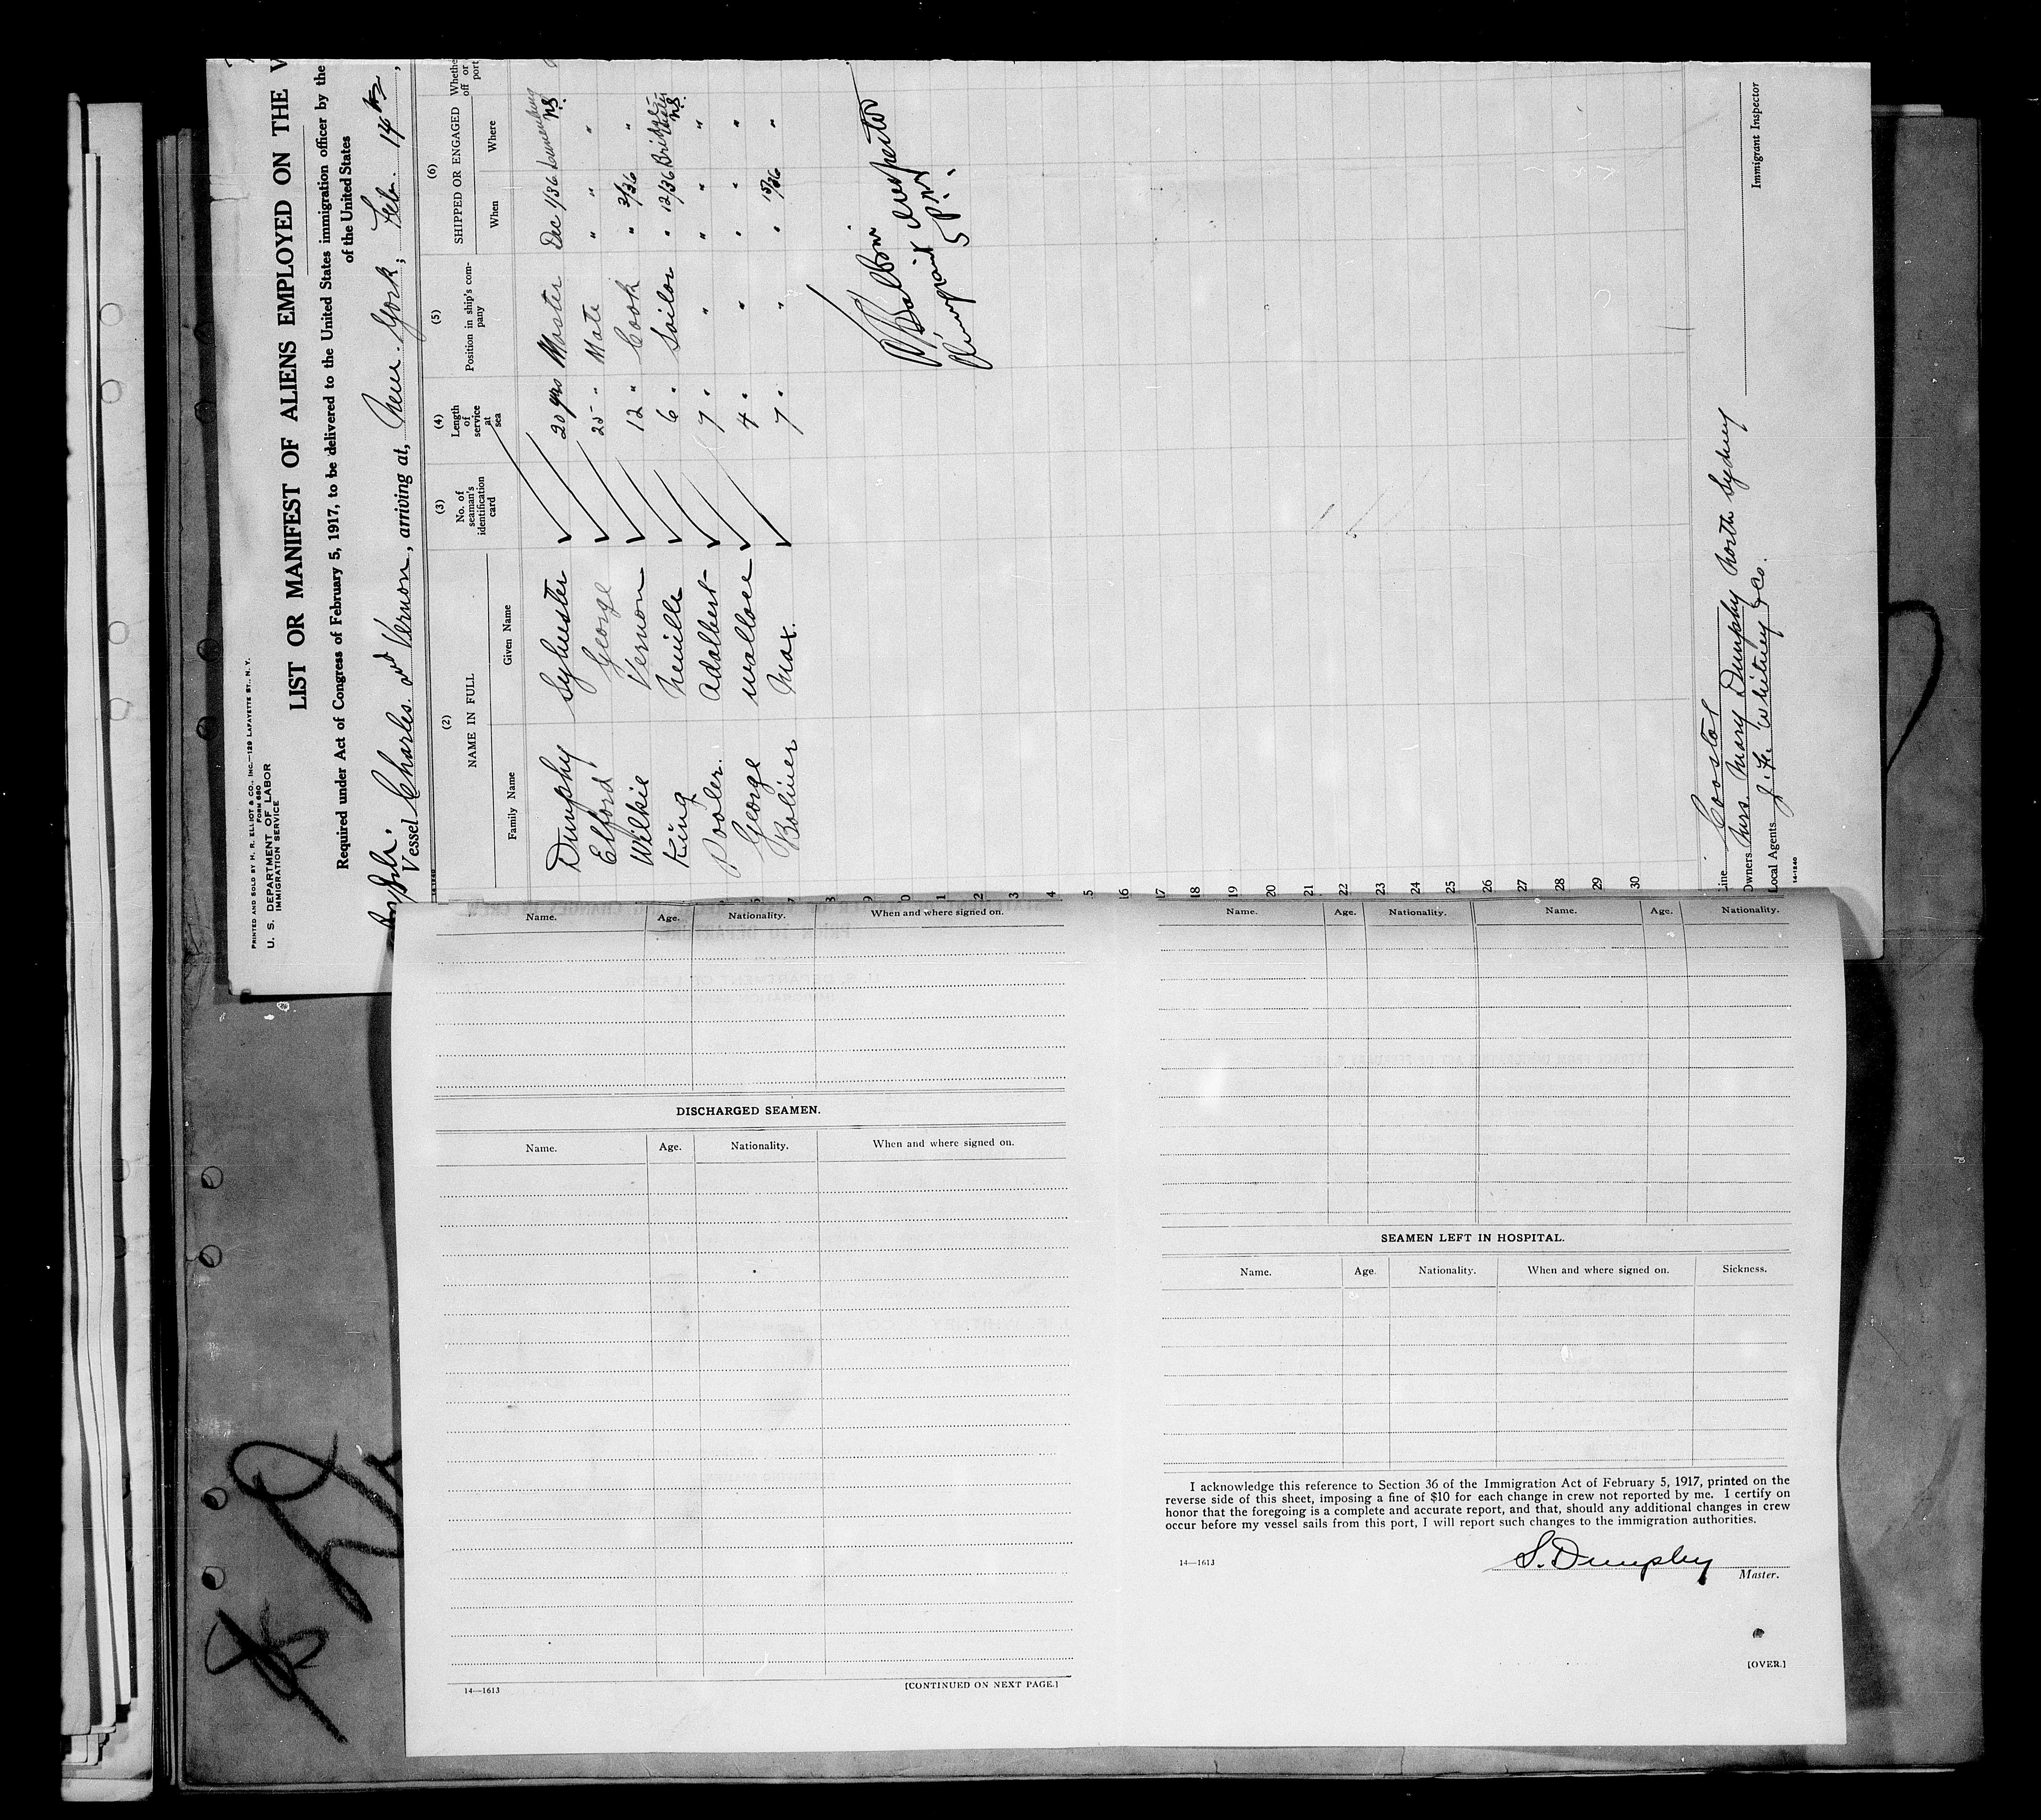 PRINTED AND SOLD BY H. R. ELLIOT & CO., INC.—129 LAFAYETTE ST., N. Y.
FORM 680
U. S. DEPARTMENT OF LABOR
IMMIGRATION SERVICE
LIST OR MANIFEST OF ALIENS EMPLOYED ON THE V
Required under Act of Congress of February 5, 1917, to be delivered to the United States immigration officer by the
of the United States
Vessel Charles and Vernon, arriving at, New York, Feb. 14th,
(2)
NAME IN FULL
Family Name Given Name
(3)
No. of
seaman's
identification
card
(4)
Length
of
service
at
sea
(5)
Position in ship's com-
pany
(6)
SHIPPED OR ENGAGED
When Where
Whethe
off
or
port
Dunphy Sylvester 20 yrs Master Dec 1/36 Lunenburg NS.
Elford George 25 " Mate " " "
Wilkie Vernon 12 " Cook " 3/36 "
King Neville 6 " Sailor " 12/36 Bridgewater NS.
Pooler. Adalbert 7 " " " " "
George Wallace 4 " " " " "
Boliner Max. 7 " " " 15/36 "
Immigrant Inspector
5 P.M.
8
9
0
1
2
3
4
5
16
17
18
19
20
21
22
23
24
25
26
27
28
29
30
Line Coastal
Owners Mrs. Mary Dunphy North Sydney
Local Agents J. F. Whitney & Co.
Immigrant Inspector
14-1240
Name. Age. Nationality. When and where signed on.
DISCHARGED SEAMEN.
Name. Age. Nationality. When and where signed on.
14—1613 [CONTINUED ON NEXT PAGE.]
Name. Age. Nationality. Name. Age. Nationality.
SEAMEN LEFT IN HOSPITAL.
Name. Age. Nationality. When and where signed on. Sickness.
I acknowledge this reference to Section 36 of the Immigration Act of February 5, 1917, printed on the
reverse side of this sheet, imposing a fine of $10 for each change in crew not reported by me. I certify on
honor that the foregoing is a complete and accurate report, and that, should any additional changes in crew
occur before my vessel sails from this port, I will report such changes to the immigration authorities.
14—1613
S. Dunphy
Master.
[OVER.]